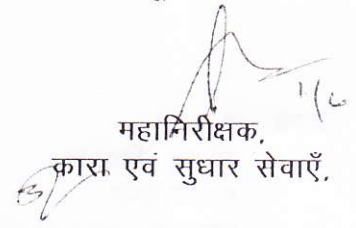 1/6
महानिरीक्षक,
कारा एवं सुधार सेवाएँ,